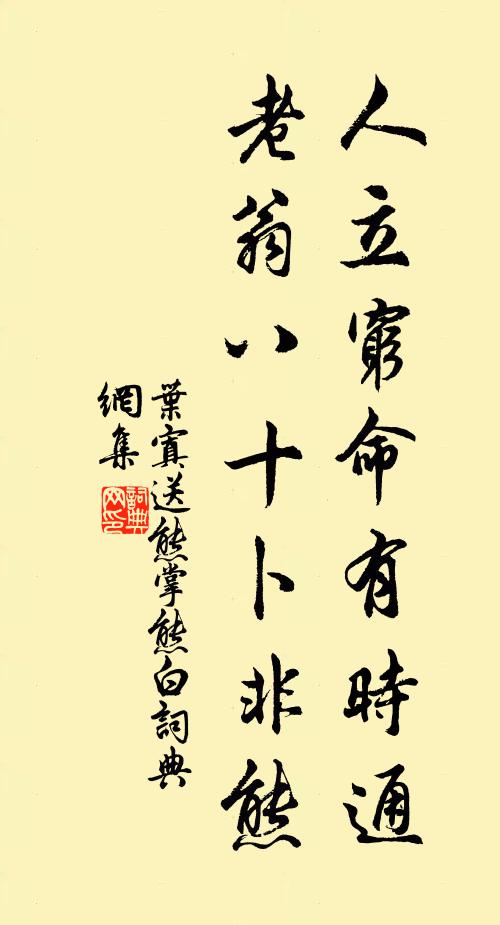 人立窮命有時通
老翁八十卜非熊
葉寘送熊掌熊白詞典
網集
詞典
网印